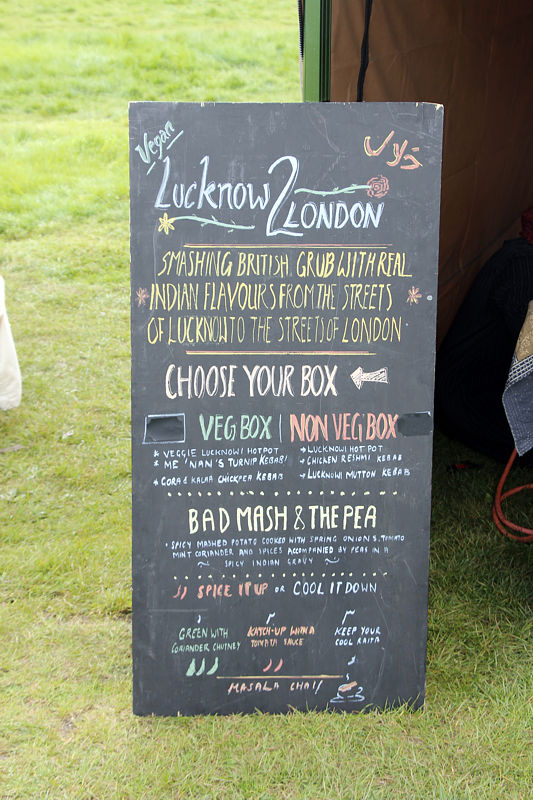 Vegan
Lucknow 2
LONDON
SMASHING BRITISH GRUB WITH REAL
INDIAN FLAVOURS FROM THE STREETS
OF LUCKNOW TO THE STREETS OF LONDON
CHOOSE YOUR BOX
VEG BOX | NON VEG BOX
* VEGGIE LUCKNOWI HOTPOT
* ME 'NAN'S TURNIP KEBAB!
* CORA & KALAA CHICKPEA KEBAB
→ LUCKNOWI HOT POT
→ CHICKEN RESHMI KEBAB
→ LUCKNOWI MUTTON KEBAB
BAD MASH & THE PEA
• SPICY MASHED POTATO COOKED WITH SPRING ONIONS, TOMATO
MINT CORIANDER AND SPICES ACCOMPANIED BY PEAS IN A
~ SPICY INDIAN GRAVY ~
SPICE IT UP OR COOL IT DOWN
GREEN WITH
CORIANDER CHUTNEY
KATCH-UP WITH A
TOMATO SAUCE
KEEP YOUR
COOL RAITA
MASALA CHAI!